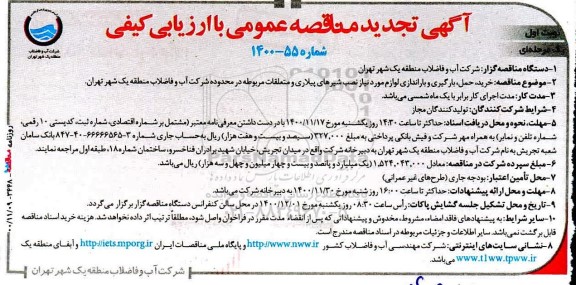 آگهی تجدید مناقصه عمومی با ارزیابی کیفی
شماره ۵۵-۱۴۰۰
نوبت اول
یک مرحله‌ای
شرکت آب و فاضلاب
منطقه یک شهر تهران
۱-دستگاه مناقصه گزار: شرکت آب و فاضلاب منطقه یک شهر تهران
۲-موضوع مناقصه: خرید، حمل، بارگیری و باراندازی لوازم مورد نیاز نصب شیرهای پیلاری و متعلقات مربوطه در محدوده شرکت آب و فاضلاب منطقه یک شهر تهران.
۳-مدت کار: مدت اجرای کار برابر با یک ماه شمسی می‌باشد.
۴-شرایط شرکت کنندگان: تولیدکنندگان مجاز
۵-مهلت، نحوه و محل دریافت اسناد: حداکثر تا ساعت ۱۴:۳۰ روز یکشنبه مورخ ۱۴۰۰/۱۱/۱۷ با در دست داشتن معرفی‌نامه معتبر (مشتمل بر شماره اقتصادی، شماره ثبت، کدپستی ۱۰ رقمی،
شماره تلفن و نمابر) به همراه مهر شرکت و فیش بانکی پرداختی به مبلغ ۳۲۷،۰۰۰ (سیصد و بیست و هفت هزار) ریال به حساب جاری شماره ۳-۶۶۶۶۶۵۶۵-۴۰-۸۴۷ بانک سامان
شعبه تجریش به نام شرکت آب و فاضلاب منطقه یک شهر تهران به دبیرخانه شرکت واقع در میدان تجریش، خیابان شهید برادران فناخسرو، ساختمان شماره ۱۸، طبقه اول مراجعه نمایند.
۶-مبلغ سپرده شرکت در مناقصه: معادل ۱،۵۲۴،۰۴۳،۰۰۰ (یک میلیارد و پانصد و بیست و چهار میلیون و چهل و سه هزار) ریال می‌باشد.
۷-محل تأمین اعتبار: بودجه جاری (طرح‌های غیر عمرانی)
۸-مهلت و محل ارائه پیشنهادات: حداکثر تا ساعت ۱۶:۰۰ روز شنبه مورخ ۱۴۰۰/۱۱/۳۰ به دبیرخانه شرکت می‌باشد.
۹-تاریخ و محل تشکیل جلسه گشایش پاکات: رأس ساعت ۰۸:۳۰ روز یکشنبه مورخ ۱۴۰۰/۱۲/۰۱ در محل سالن کنفرانس دستگاه مناقصه گزار برگزار می گردد.
۱۰-سایر شرایط: به پیشنهادهای فاقد امضاء، مشروط، مخدوش و پیشنهاداتی که پس از انقضاء مدت مقرر در فراخوان واصل شود، مطلقاً ترتیب اثر داده نخواهد شد. هزینه خرید اسناد مناقصه
قابل برگشت نمی‌باشد. سایر اطلاعات و جزئیات مربوطه در اسناد مناقصه مندرج است.
۸-نشانی سایت‌های اینترنتی: شرکت مهندسی آب و فاضلاب کشور http://www.nww.ir و پایگاه ملی مناقصات ایران http://iets.mporg.ir و آبفای منطقه یک
www.t1ww.tpww.ir می‌باشد.
شرکت آب و فاضلاب منطقه یک شهر تهران
روزنامه مناقصه